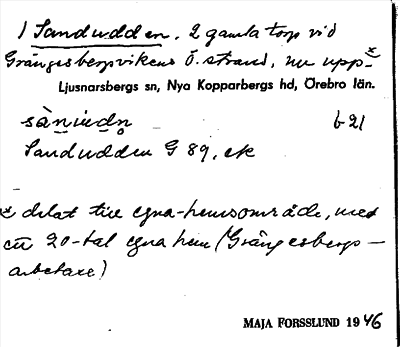 1 Sandudden, 2 gamla torp vid
Grängesbergsvikens Ö. strand, nu upp-x
Ljusnarsbergs sn, Nya Kopparbergs hd, Örebro län.
sànùdn̥ b21
Sandudden G 89, ek
x delat till egna-hemsområde, med
ett 20-tal egna hem (Grängesbergs-
arbetare)
MAJA FORSSLUND 1946